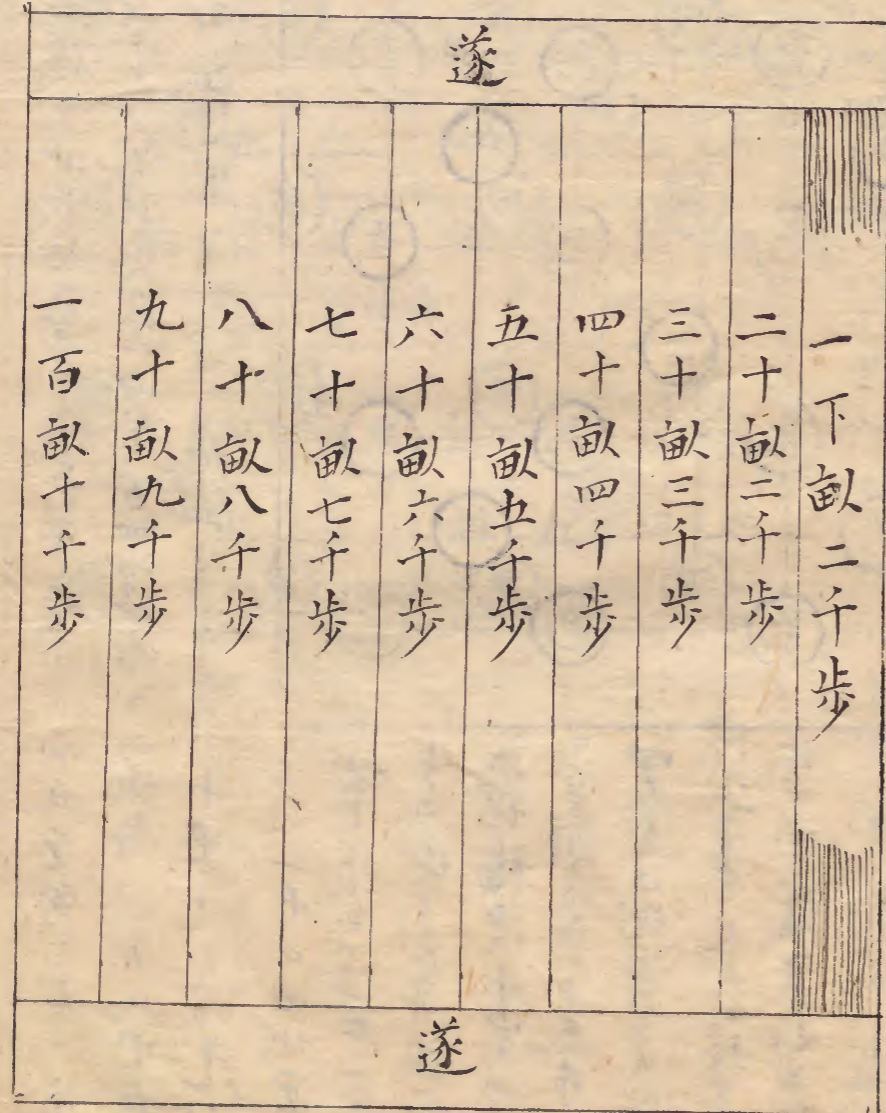 遂
一下畝二千步
二十畝二千步
三十畝三千步
四十畝四千步
五十畝五千步
六十畝六千步
七十畝七千步
八十畝八千步
九十畝九千步
一百畝十千步
遂